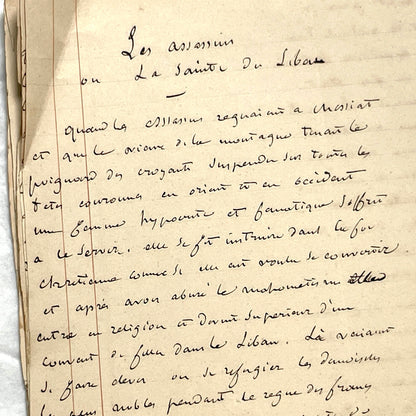 Les assassins
ou La Sainte du Liban
Quand les assassins regnaient a Massiat
et que le vieux de la montagne tenait le
poignard des croyants suspendu sur toutes les
tetes couronnes en orient et en occident
une femme hypocrite et fanatique s'offrit
a le servir. elle se fit instruire dans la foi
chretienne comme si elle eut voulu se convertir
et apres avoir abusé le mahometisme elle
entre en religion et devint superieure d'un
couvent de filles dans le Liban. Là venaient
se faire elever ou se refugier les demoiselles
les plus nobles pendant le regne des francs